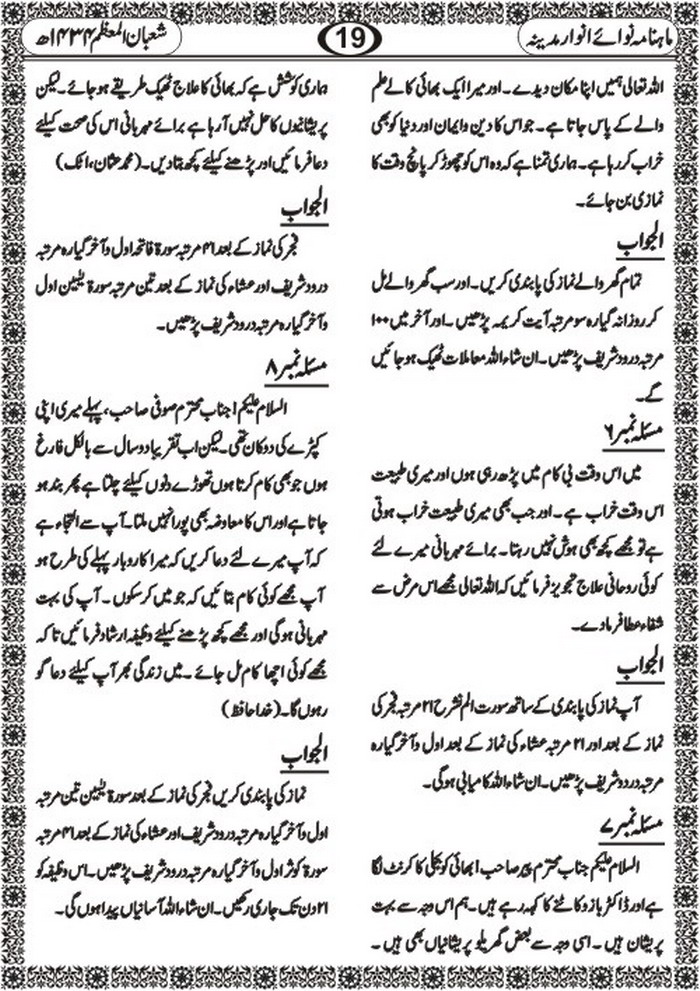 ماہنامہ نوائے انوار مدینہ
19
شعبان المعظم ۱۴۳۴ھ
اللہ تعالی ہمیں اپنا مکان دیدے۔ اور میرا ایک بھائی کالے علم
والے کے پاس جاتا ہے۔ جو اس کا دین و ایمان اور دنیا کو بھی
خراب کر رہا ہے۔ ہماری تمنا ہے کہ وہ اس کو چھوڑ کر پانچ وقت کا
نمازی بن جائے۔
الجواب
تمام گھر والے نماز کی پابندی کریں۔ اور سب گھر والے مل
کر روزانہ گیارہ سو مرتبہ آیت کریمہ پڑھیں۔ اور آخر میں ۱۰۰
مرتبہ درود شریف پڑھیں۔ ان شاء اللہ معاملات ٹھیک ہو جائیں
گے۔
مسئلہ نمبر ۶
میں اس وقت بی کام میں پڑھ رہی ہوں اور میری طبیعت
اس وقت خراب ہے۔ اور جب بھی میری طبیعت خراب ہوتی
ہے تو مجھے کچھ بھی ہوش نہیں رہتا۔ برائے مہربانی میرے لئے
کوئی روحانی علاج تجویز فرمائیں کہ اللہ تعالی مجھے اس مرض سے
شفاء عطا فرمادے۔
الجواب
آپ نماز کی پابندی کے ساتھ سورت الم نشرح ۲۱ مرتبہ فجر کی
نماز کے بعد اور ۲۱ مرتبہ عشاء کی نماز کے بعد اول و آخر گیارہ
مرتبہ درود شریف پڑھیں۔ ان شاء اللہ کامیابی ہوگی۔
مسئلہ نمبر ۷
السلام علیکم جناب محترم پیر صاحب! بھائی کو بجلی کا کرنٹ لگا
ہے اور ڈاکٹر بازو کاٹنے کا کہہ رہے ہیں۔ ہم اس وجہ سے بہت
پریشان ہیں۔ اسی وجہ سے بعض گھریلو پریشانیاں بھی ہیں۔
ہماری کوشش ہے کہ بھائی کا علاج ٹھیک طریقے ہو جائے۔ لیکن
پریشانیوں کا حل نہیں آرہا ہے برائے مہربانی اس کی صحت کیلئے
دعا فرمائیں اور پڑھنے کیلئے کچھ بتا دیں۔ (محمد عثمان، اٹک)
الجواب
فجر کی نماز کے بعد ۴۱ مرتبہ سورۃ فاتحہ اول و آخر گیارہ مرتبہ
درود شریف اور عشاء کی نماز کے بعد تین مرتبہ سورۃ یٰسین اول
و آخر گیارہ مرتبہ درود شریف پڑھیں۔
مسئلہ نمبر ۸
السلام علیکم! جناب محترم صوفی صاحب، پہلے میری اپنی
کپڑے کی دوکان تھی۔ لیکن اب تقریبا دو سال سے بالکل فارغ
ہوں جو بھی کام کرتا ہوں تھوڑے دنوں کیلئے چلتا ہے پھر بند ہو
جاتا ہے اور اس کا معاوضہ بھی پورا نہیں ملتا۔ آپ سے التجاء ہے
کہ آپ میرے لئے دعا کریں کہ میرا کاروبار پہلے کی طرح ہو
آپ مجھے کوئی کام بتائیں کہ جو میں کرسکوں۔ آپ کی بہت
مہربانی ہوگی اور مجھے کچھ پڑھنے کیلئے وظیفہ ارشاد فرمائیں تا کہ
مجھے کوئی اچھا کام مل جائے۔ میں زندگی بھر آپ کیلئے دعا گو
رہوں گا۔ (خدا حافظ)
الجواب
نماز کی پابندی کریں فجر کی نماز کے بعد سورۃ یٰسین تین مرتبہ
اول و آخر گیارہ مرتبہ درود شریف اور عشاء کی نماز کے بعد ۴۱ مرتبہ
سورۃ کوثر اول و آخر گیارہ مرتبہ درود شریف پڑھیں۔ اس وظیفہ کو
۲۱ دن تک جاری رکھیں۔ ان شاء اللہ آسانیاں پیدا ہوں گی۔